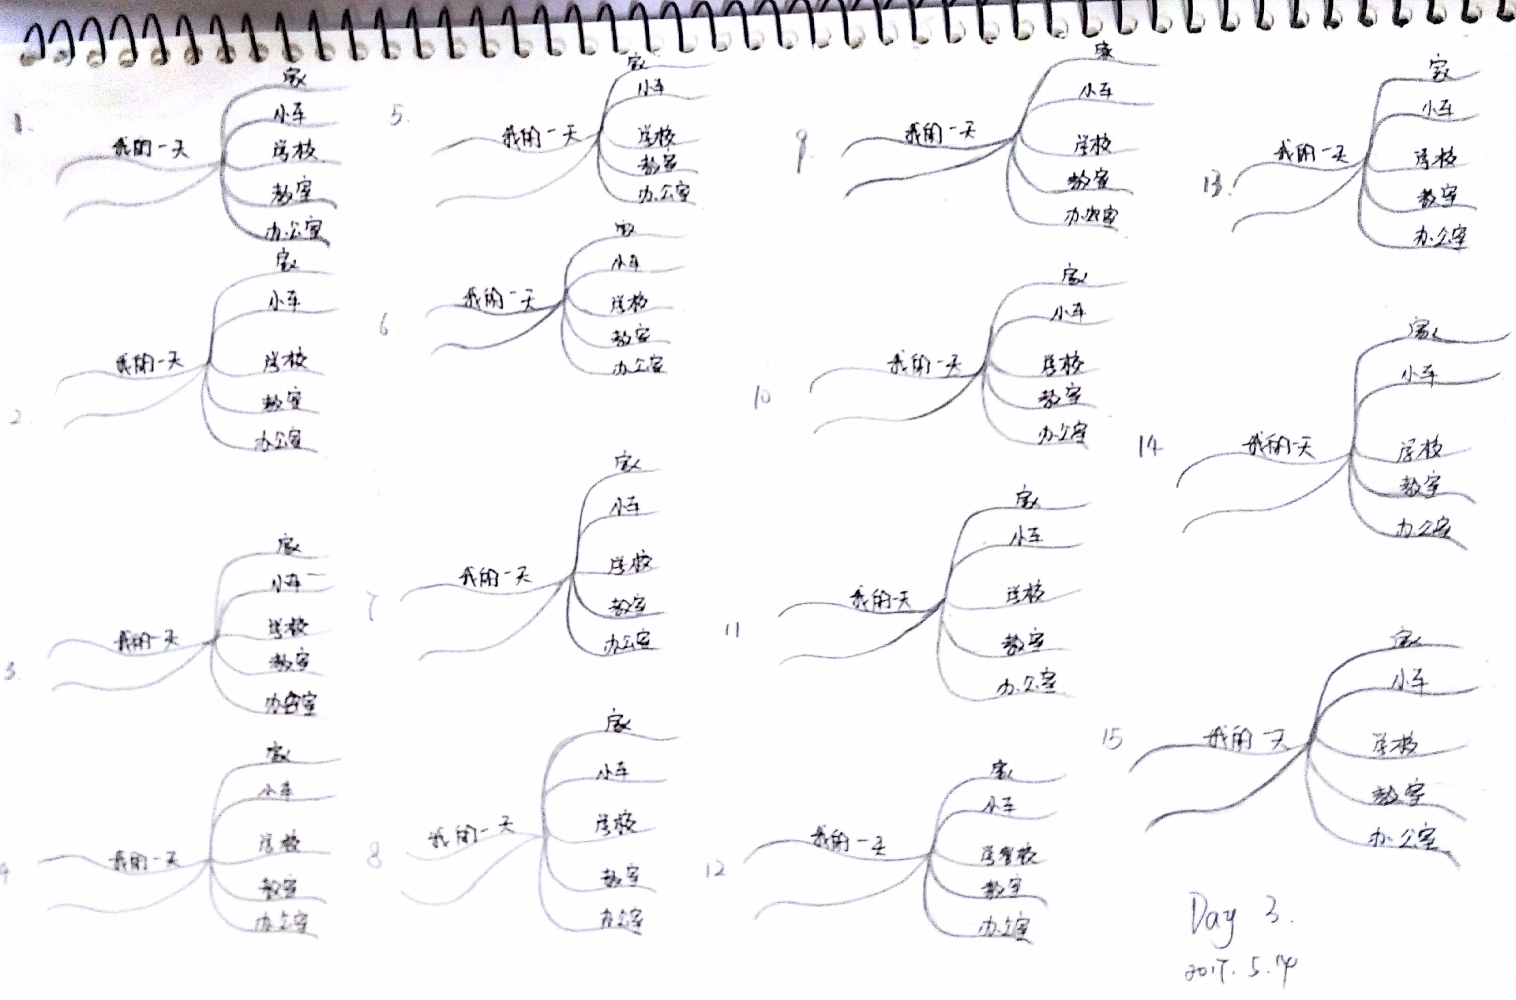 1.
家
小车
我的一天
学校
教室
办公室
2.
家
小车
我的一天
学校
教室
办公室
3.
家
小车
我的一天
学校
教室
办公室
4
家
小车
我的一天
学校
教室
办公室
5.
家
小车
我的一天
学校
教室
办公室
6.
家
小车
我的一天
学校
教室
办公室
7
家
小车
我的一天
学校
教室
办公室
8
家
小车
我的一天
学校
教室
办公室
9.
家
小车
我的一天
学校
教室
办公室
10
家
小车
我的一天
学校
教室
办公室
11
家
小车
我的一天
学校
教室
办公室
12
家
小车
我的一天
学校
教室
办公室
13.
家
小车
我的一天
学校
教室
办公室
14
家
小车
我的一天
学校
教室
办公室
15
家
小车
我的一天
学校
教室
办公室
Day 3.
2017.5.14